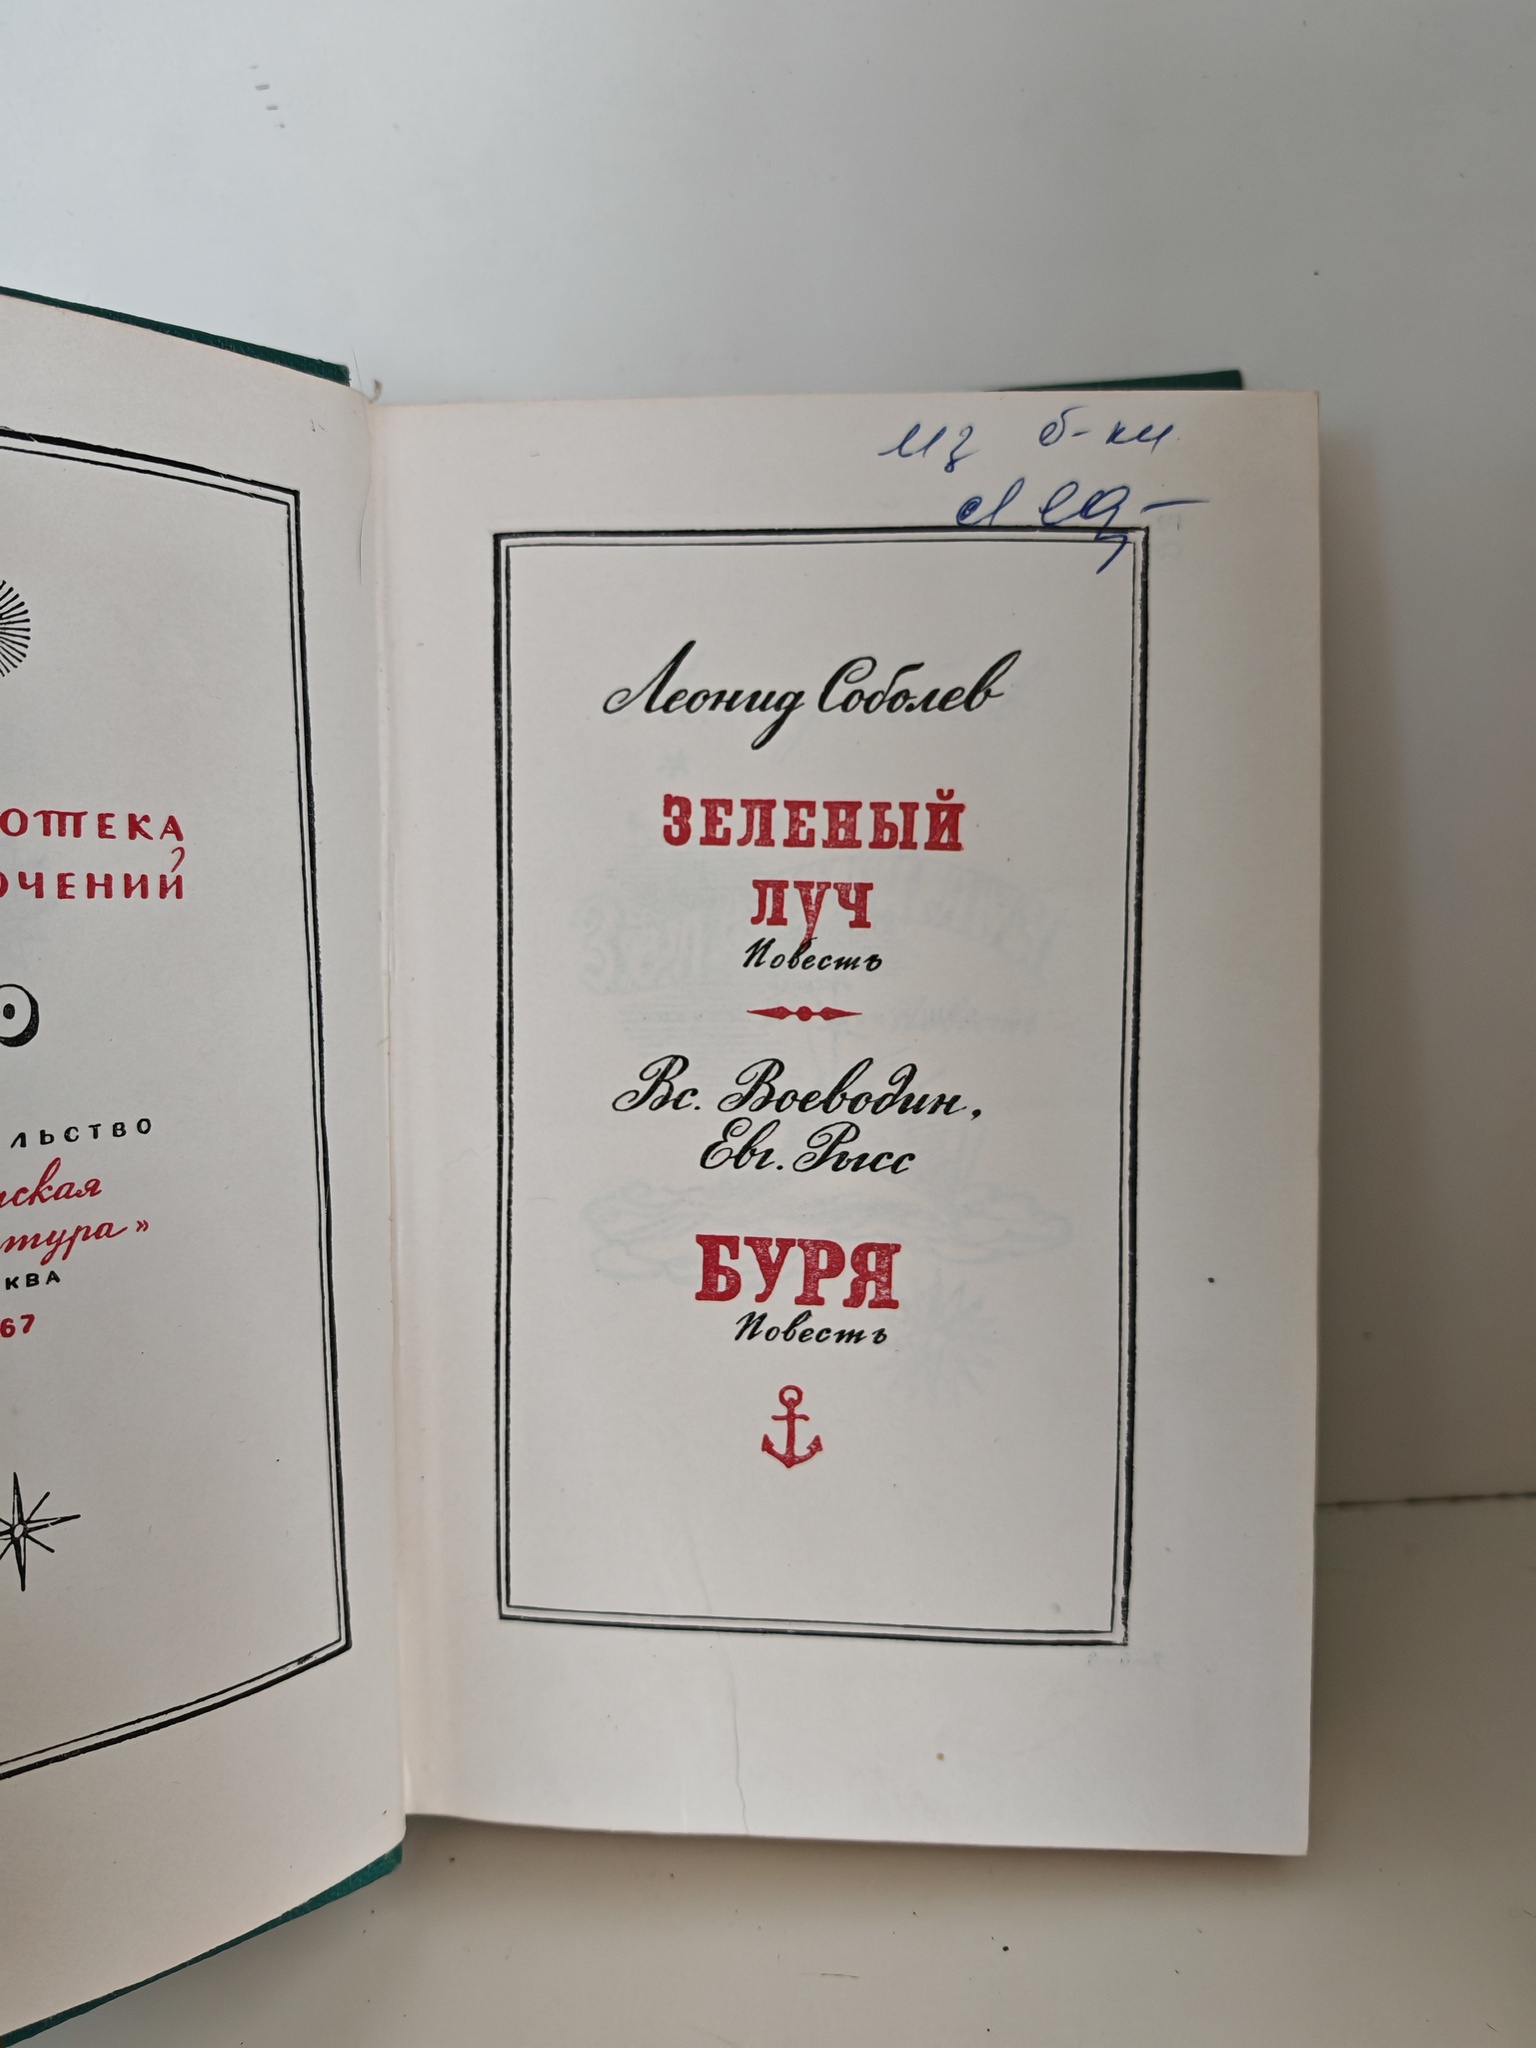 ОТЕКА
ЮЧЕНИЙ
ЛЬСТВО
ская
тура»
КВА
67
из б-ки
Леонид Соболев
ЗЕЛЕНЫЙ
ЛУЧ
Повесть
Вс. Воеводин,
Евг. Рысс
БУРЯ
Повесть